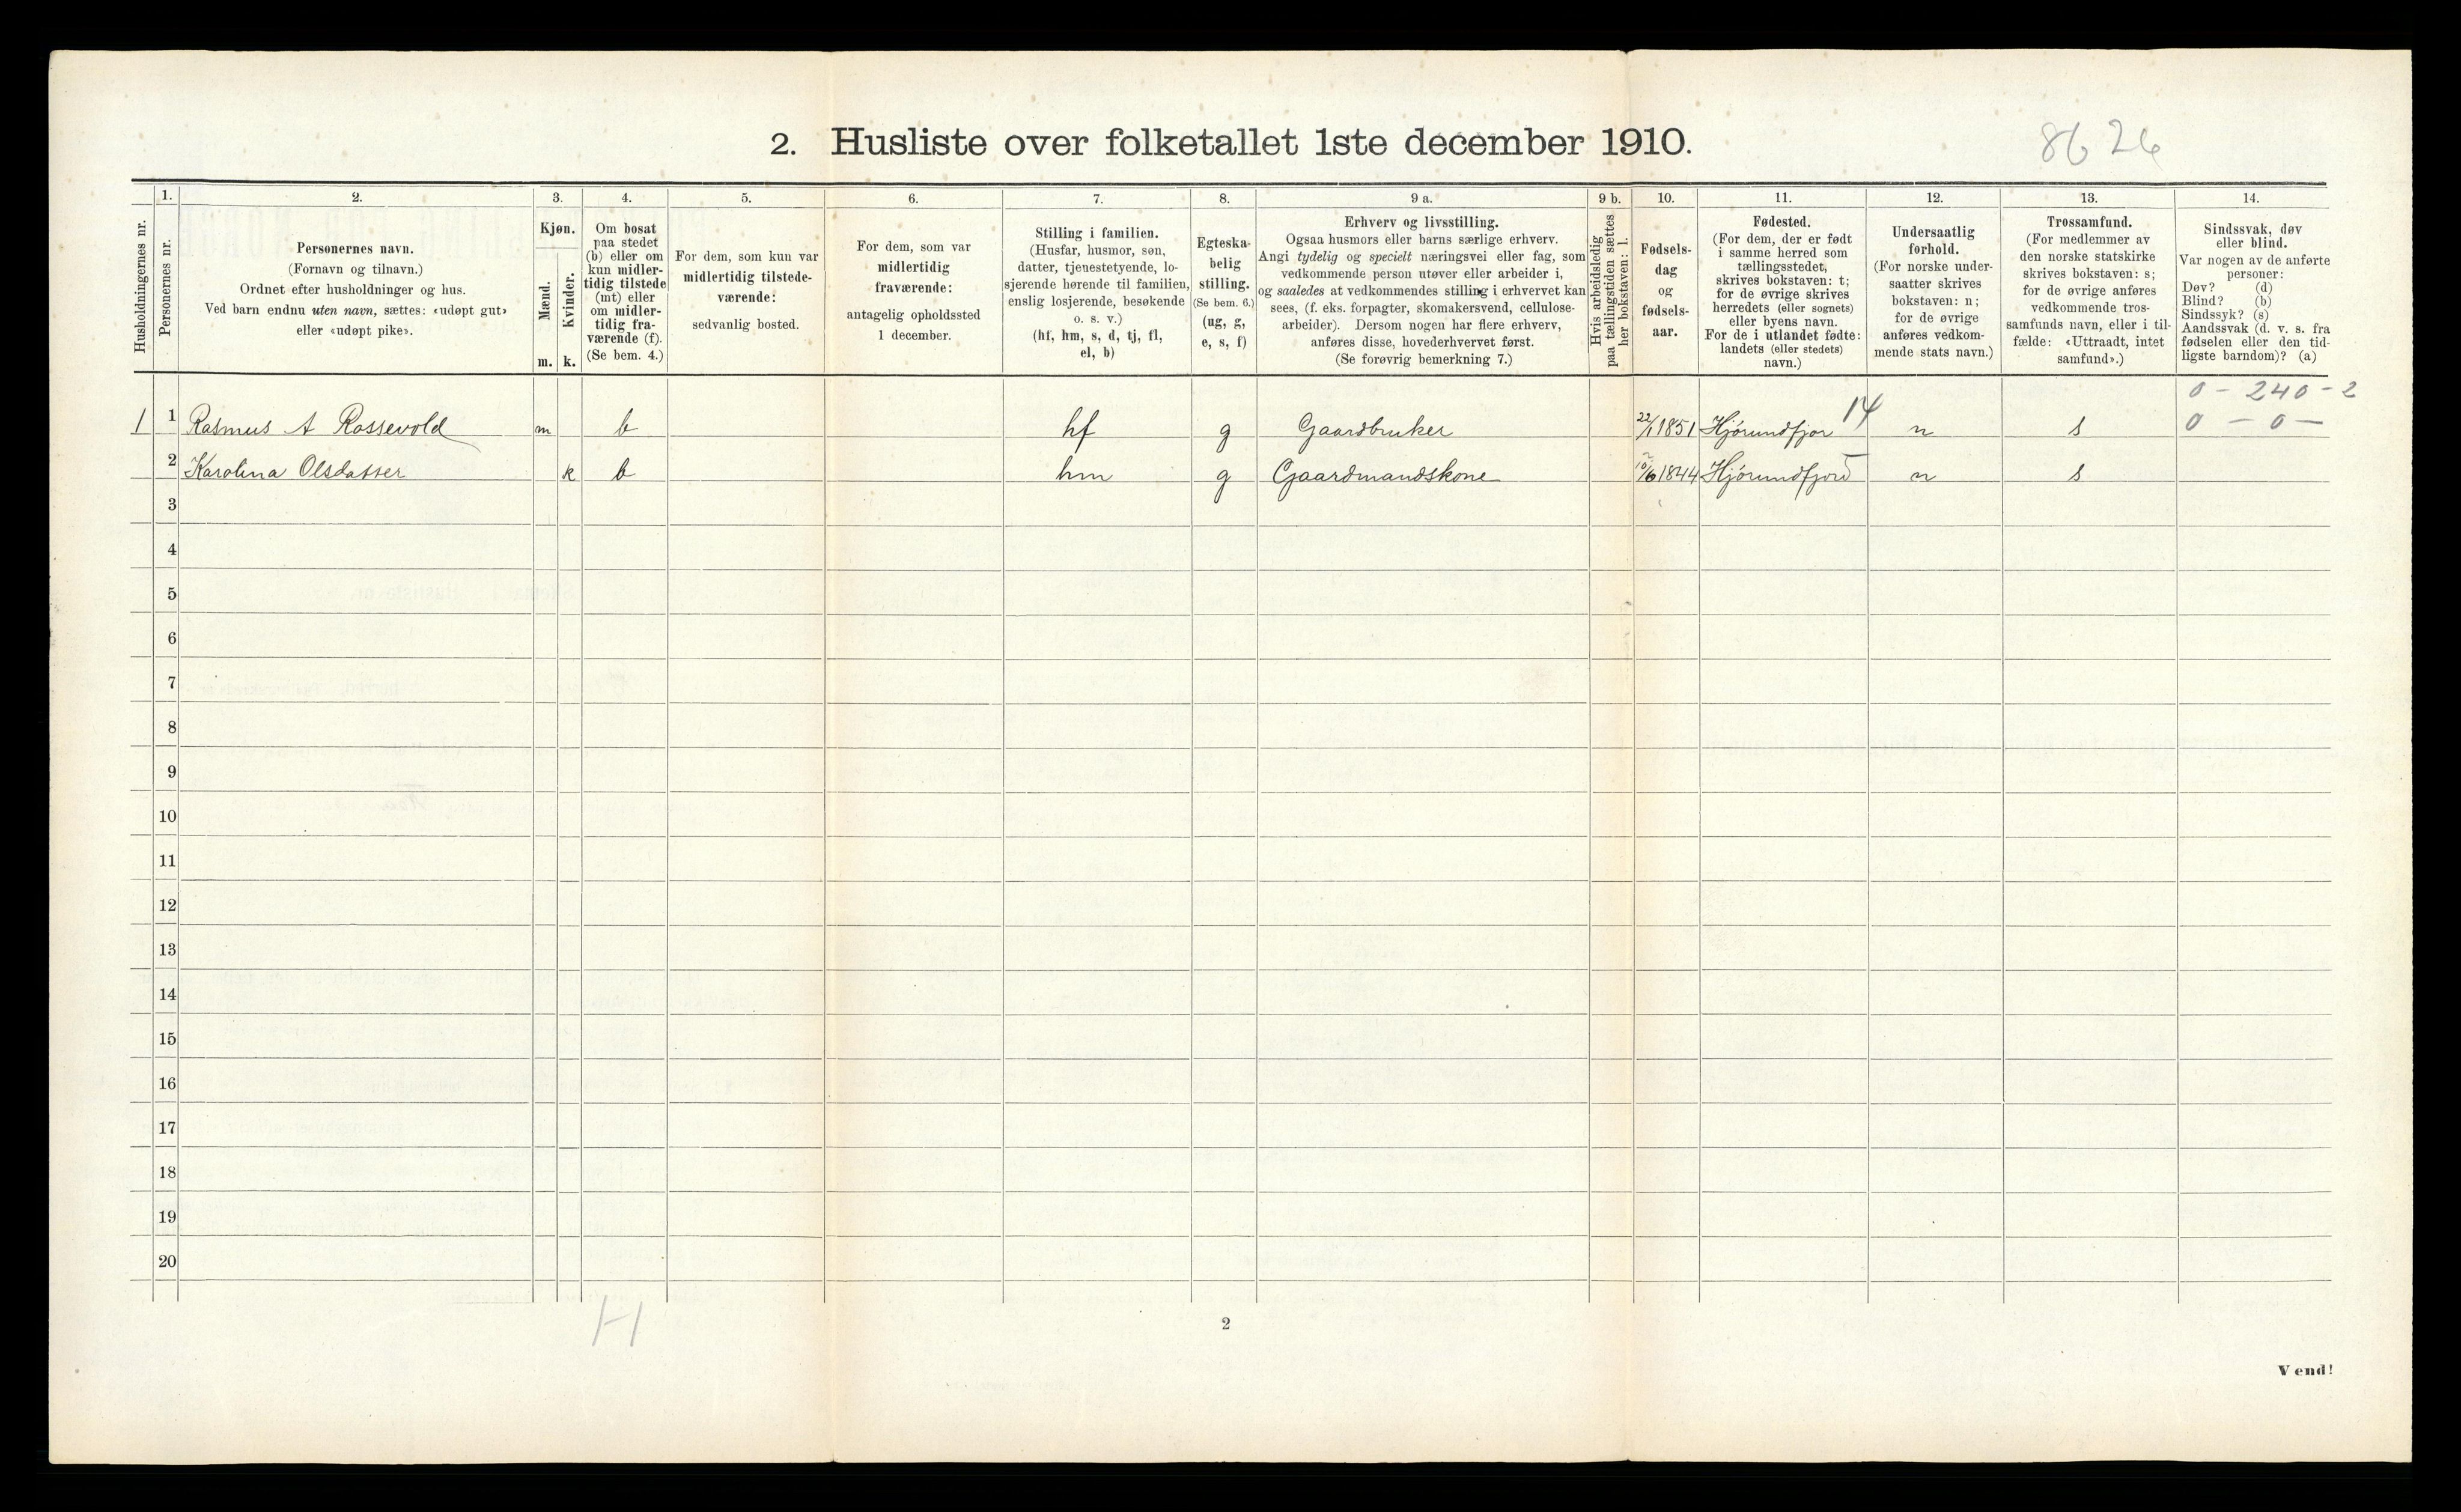 2. Husliste over folketallet 1ste december 1910.
8626
Husholdningernes nr.
1.
Personernes nr.
2.
Personernes navn.
(Fornavn og tilnavn.)
Ordnet efter husholdninger og hus.
Ved barn endnu uten navn, sættes: «udøpt gut»
eller «udøpt pike».
3.
Kjøn.
Mænd.
Kvinder.
m. k.
4.
Om bosat
paa stedet
(b) eller om
kun midler-
tidig tilstede
(mt) eller
om midler-
tidig fra-
værende (f).
(Se bem. 4.)
5.
For dem, som kun var
midlertidig tilstede-
værende:
sedvanlig bosted.
6.
For dem, som var
midlertidig
fraværende:
antagelig opholdssted
1 december.
7.
Stilling i familien.
(Husfar, husmor, søn,
datter, tjenestetyende, lo-
sjerende hørende til familien,
enslig losjerende, besøkende
o. s. v.)
(hf, hm, s, d, tj, fl,
el, b)
8.
Egteska-
belig
stilling.
(Se bem. 6.)
(ug, g,
e, s, f)
9 a.
Erhverv og livsstilling.
Ogsaa husmors eller barns særlige erhverv.
Angi tydelig og specielt næringsvei eller fag, som
vedkommende person utøver eller arbeider i,
og saaledes at vedkommendes stilling i erhvervet kan
sees, (f. eks. forpagter, skomakersvend, cellulose-
arbeider). Dersom nogen har flere erhverv,
anføres disse, hovederhvervet først.
(Se forøvrig bemerkning 7.)
9 b.
Hvis arbeidsledig
paa tællingstiden sættes
her bokstaven: l.
10.
Fødsels-
dag
og
fødsels-
aar.
11.
Fødested.
(For dem, der er født
i samme herred som
tællingsstedet,
skrives bokstaven: t;
for de øvrige skrives
herredets (eller sognets)
eller byens navn.
For de i utlandet fødte:
landets (eller stedets)
navn.)
12.
Undersaatlig
forhold.
(For norske under-
saatter skrives
bokstaven: n;
for de øvrige
anføres vedkom-
mende stats navn.)
13.
Trossamfund.
(For medlemmer av
den norske statskirke
skrives bokstaven: s;
for de øvrige anføres
vedkommende tros-
samfunds navn, eller i til-
fælde: «Uttraadt, intet
samfund».)
14.
Sindssvak, døv
eller blind.
Var nogen av de anførte
personer:
Døv? (d)
Blind? (b)
Sindssyk? (s)
Aandssvak (d. v. s. fra
fødselen eller den tid-
ligste barndom)? (a)
0 - 240 - 2
1 1 Rasmus A Rossevold m b hf g Gaardbruker 22/1 1851 Hjørundfjor 14 n s 0 - 0 -
2 Karolina Olsdatter k b hm g Gaardmandskone 10/6 1844 Hjørundfjord n s
3
4
5
6
7
8
9
10
11
12
13
14
15
16
17
18
19
20
H
2
Vend!